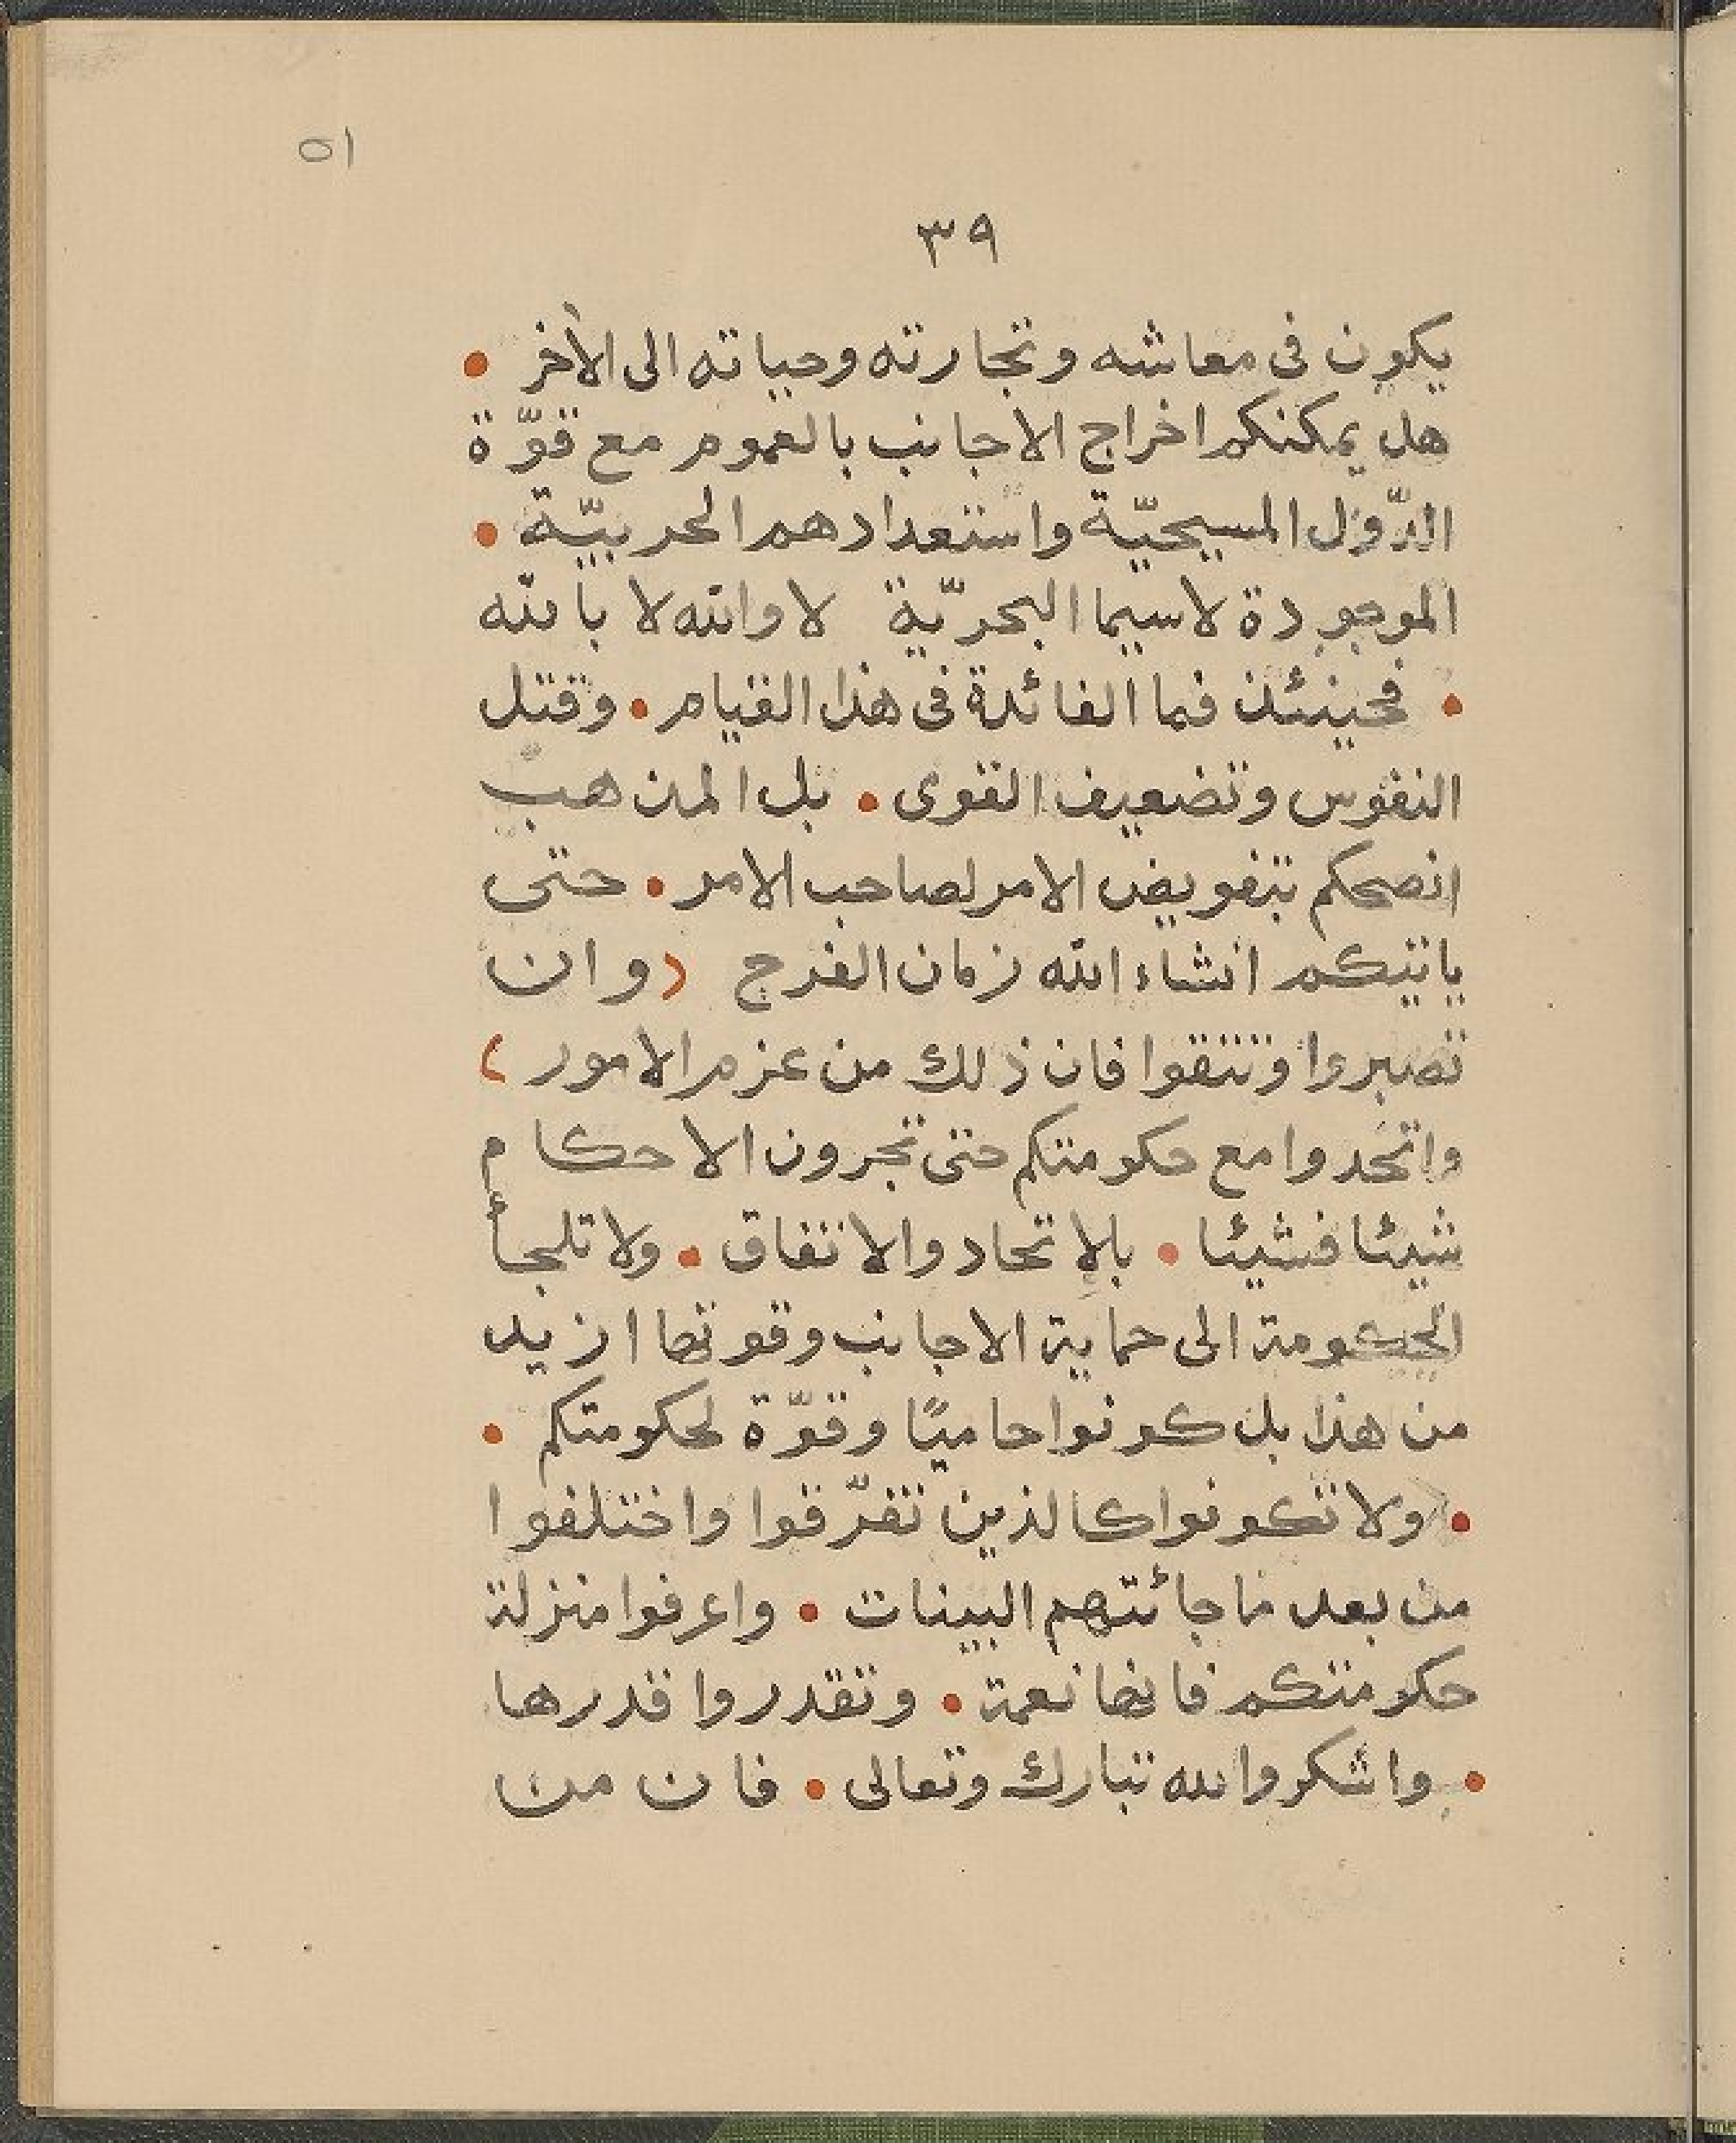 ٥١
٣٩
يكون فى معاشه وتجارته وحياته الى الأخر •
هل يمكنكم اخراج الاجانب بالعموم مع قوّة
الدّول المسيحيّة واستعدادهم الحربيّة •
الموجودة لاسيما البحريّة لا والله لا بالله
• فحينئذ فما الفائدة فى هذا القيام • وقتل
النفوس وتضعيف القوى • بل المذهب
انصحكم بتفويض الامر لصاحب الامر • حتى
ياتيكم انشاء الله زمان الفرج (وان
تصبروا وتتقوا فان ذلك من عزم الامور)
واتحدوا مع حكومتكم حتى تجرون الاحكام
شيئا فشيئا • بالإتحاد والاتفاق • ولا تلجأ
الحكومة الى حماية الاجانب وقوتها ازيد
من هذا بل كونوا حاميًا وقوّة لحكومتكم •
• ولا تكونوا كالذين تفرّقوا واختلفوا
من بعد ما جائتهم البينات • واعرفوا منزلة
حكومتكم فانها نعمة • وتقدروا قدرها
• واشكروا لله تبارك وتعالى • فان من